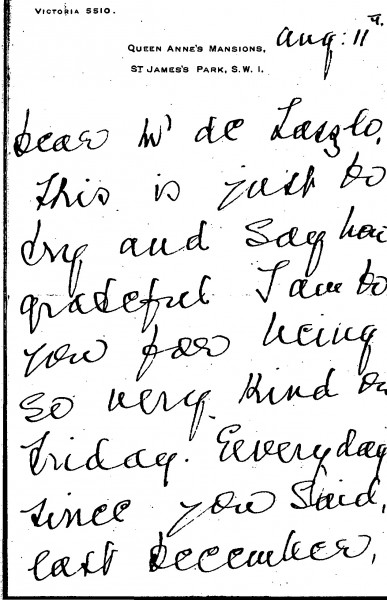 VICTORIA 5510.
QUEEN ANNE'S MANSIONS,
ST JAMES'S PARK, S.W.1.
Aug: 11th.
Dear Mr de Laszlo,
This is just to
try and say how
grateful I am to
you for being
so very kind on
Friday. Eeveryday
since you said,
last December,